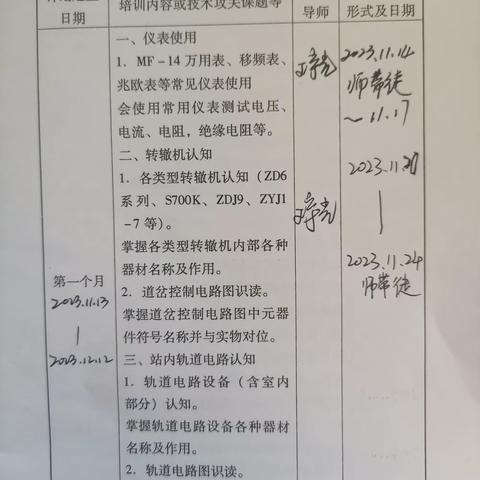 日期
培训内容或技术攻关课题等
导师
形式及日期
一、仪表使用
1. MF-14 万用表、移频表、
兆欧表等常见仪表使用
会使用常用仪表测试电压、
电流、电阻，绝缘电阻等。
2023.11.14
师带徒
~11.17
二、转辙机认知
1. 各类型转辙机认知（ZD6
系列、S700K、ZDJ9、ZYJ1
-7 等）。
掌握各类型转辙机内部各种
器材名称及作用。
2023.11.21
|
2023.11.24
师带徒
第一个月
2023.11.13
|
2023.12.12
2. 道岔控制电路图识读。
掌握道岔控制电路图中元器
件符号名称并与实物对位。
三、站内轨道电路认知
1. 轨道电路设备（含室内
部分）认知。
掌握轨道电路设备各种器材
名称及作用。
2. 轨道电路图识读。